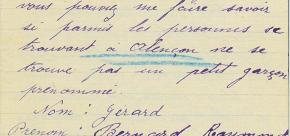 vous pouvez me faire savoir
si parmis les personnes se
trouvant à Alençon ne se
trouve pas un petit garçon
prénommé.
Nom : Gérard
Prénom : Bernard Raymond